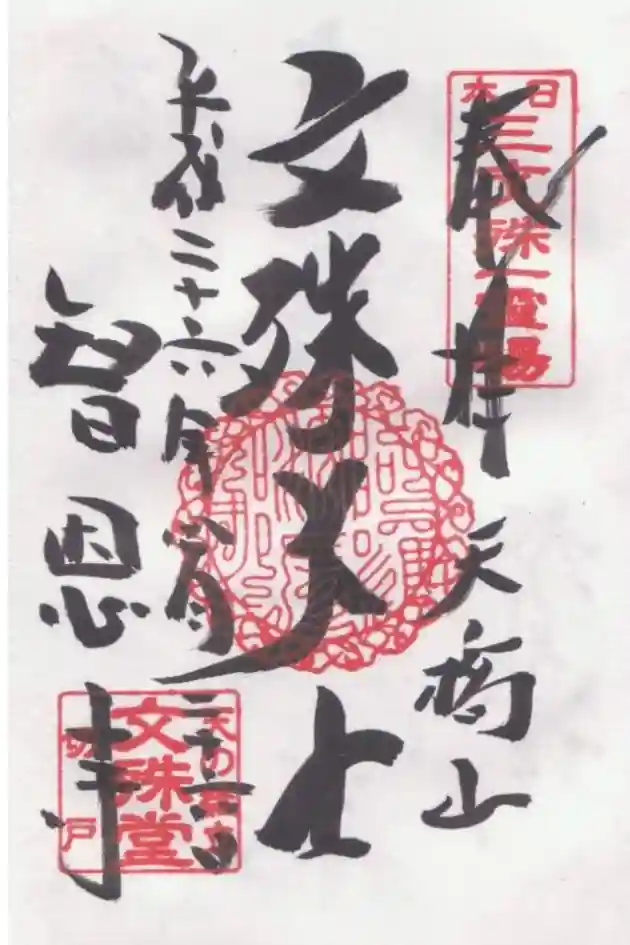 奉拝 天橋山
日本
三文殊霊場
文殊大士
平成二十六年八月二十六日
智恩寺
天の橋立
文殊堂
切戸